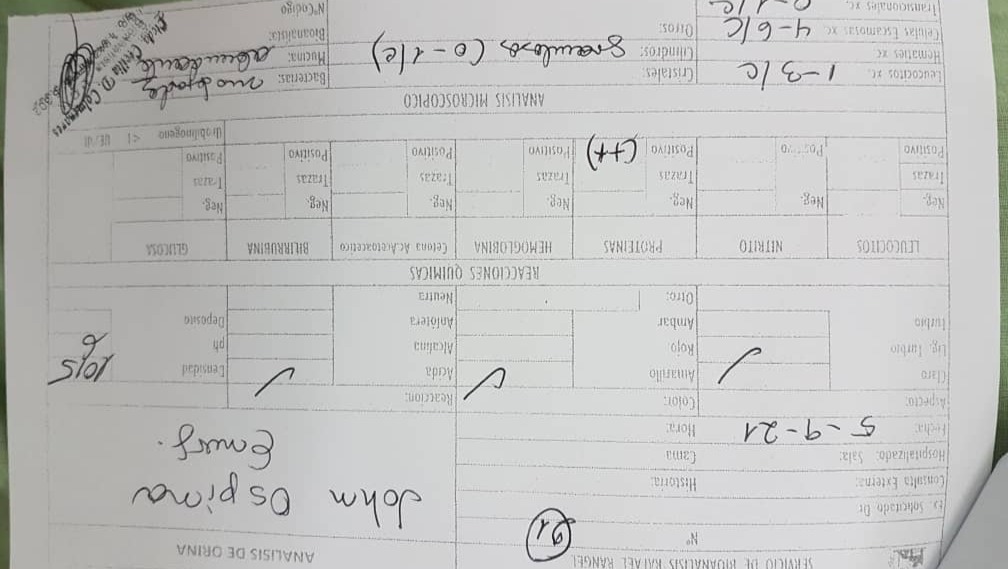 SERVICIO DE BIOANALISIS RAFAEL RANGEL
ANALISIS DE ORINA
Nº 21
Ex. Solicitado Dr
Consulta Externa: Historia:
Hospitalizado: Sala: Cama
John Ospina
Emerg.
Fecha: 5-9-21 Hora:
Aspecto: Color: Reaccion:
Claro ✓ Amarillo ✓ Acida ✓ Densidad 1015
Lig. Turbio Rojo Alcalina ph 6
Turbio Ambar Anfotera Deposito
Otro: Neutra
REACCIONES QUIMICAS
LEUCOCITOS NITRITO PROTEINAS HEMOGLOBINA Cetona Ac.Acetoacetico BILIRRUBINA GLUCOSA
Neg. Neg. Neg. Neg. Neg. Neg. Neg.
Trazas Trazas Trazas Trazas Trazas Trazas
Positivo Positivo Positivo (++) Positivo Positivo Positivo Positivo
Urobilinogeno <1 UE/dl
ANALISIS MICROSCOPICO
Leucocitos xc 1-3/C Cristales: Bacterias:
Hematies xc Cilindros: Granuloso (0-1/c) Mucina: abundante
Celulas Escamosas xc 4-6/C Otros: Bioanalista:
Transicionales xc. 0-1/C NºCodigo